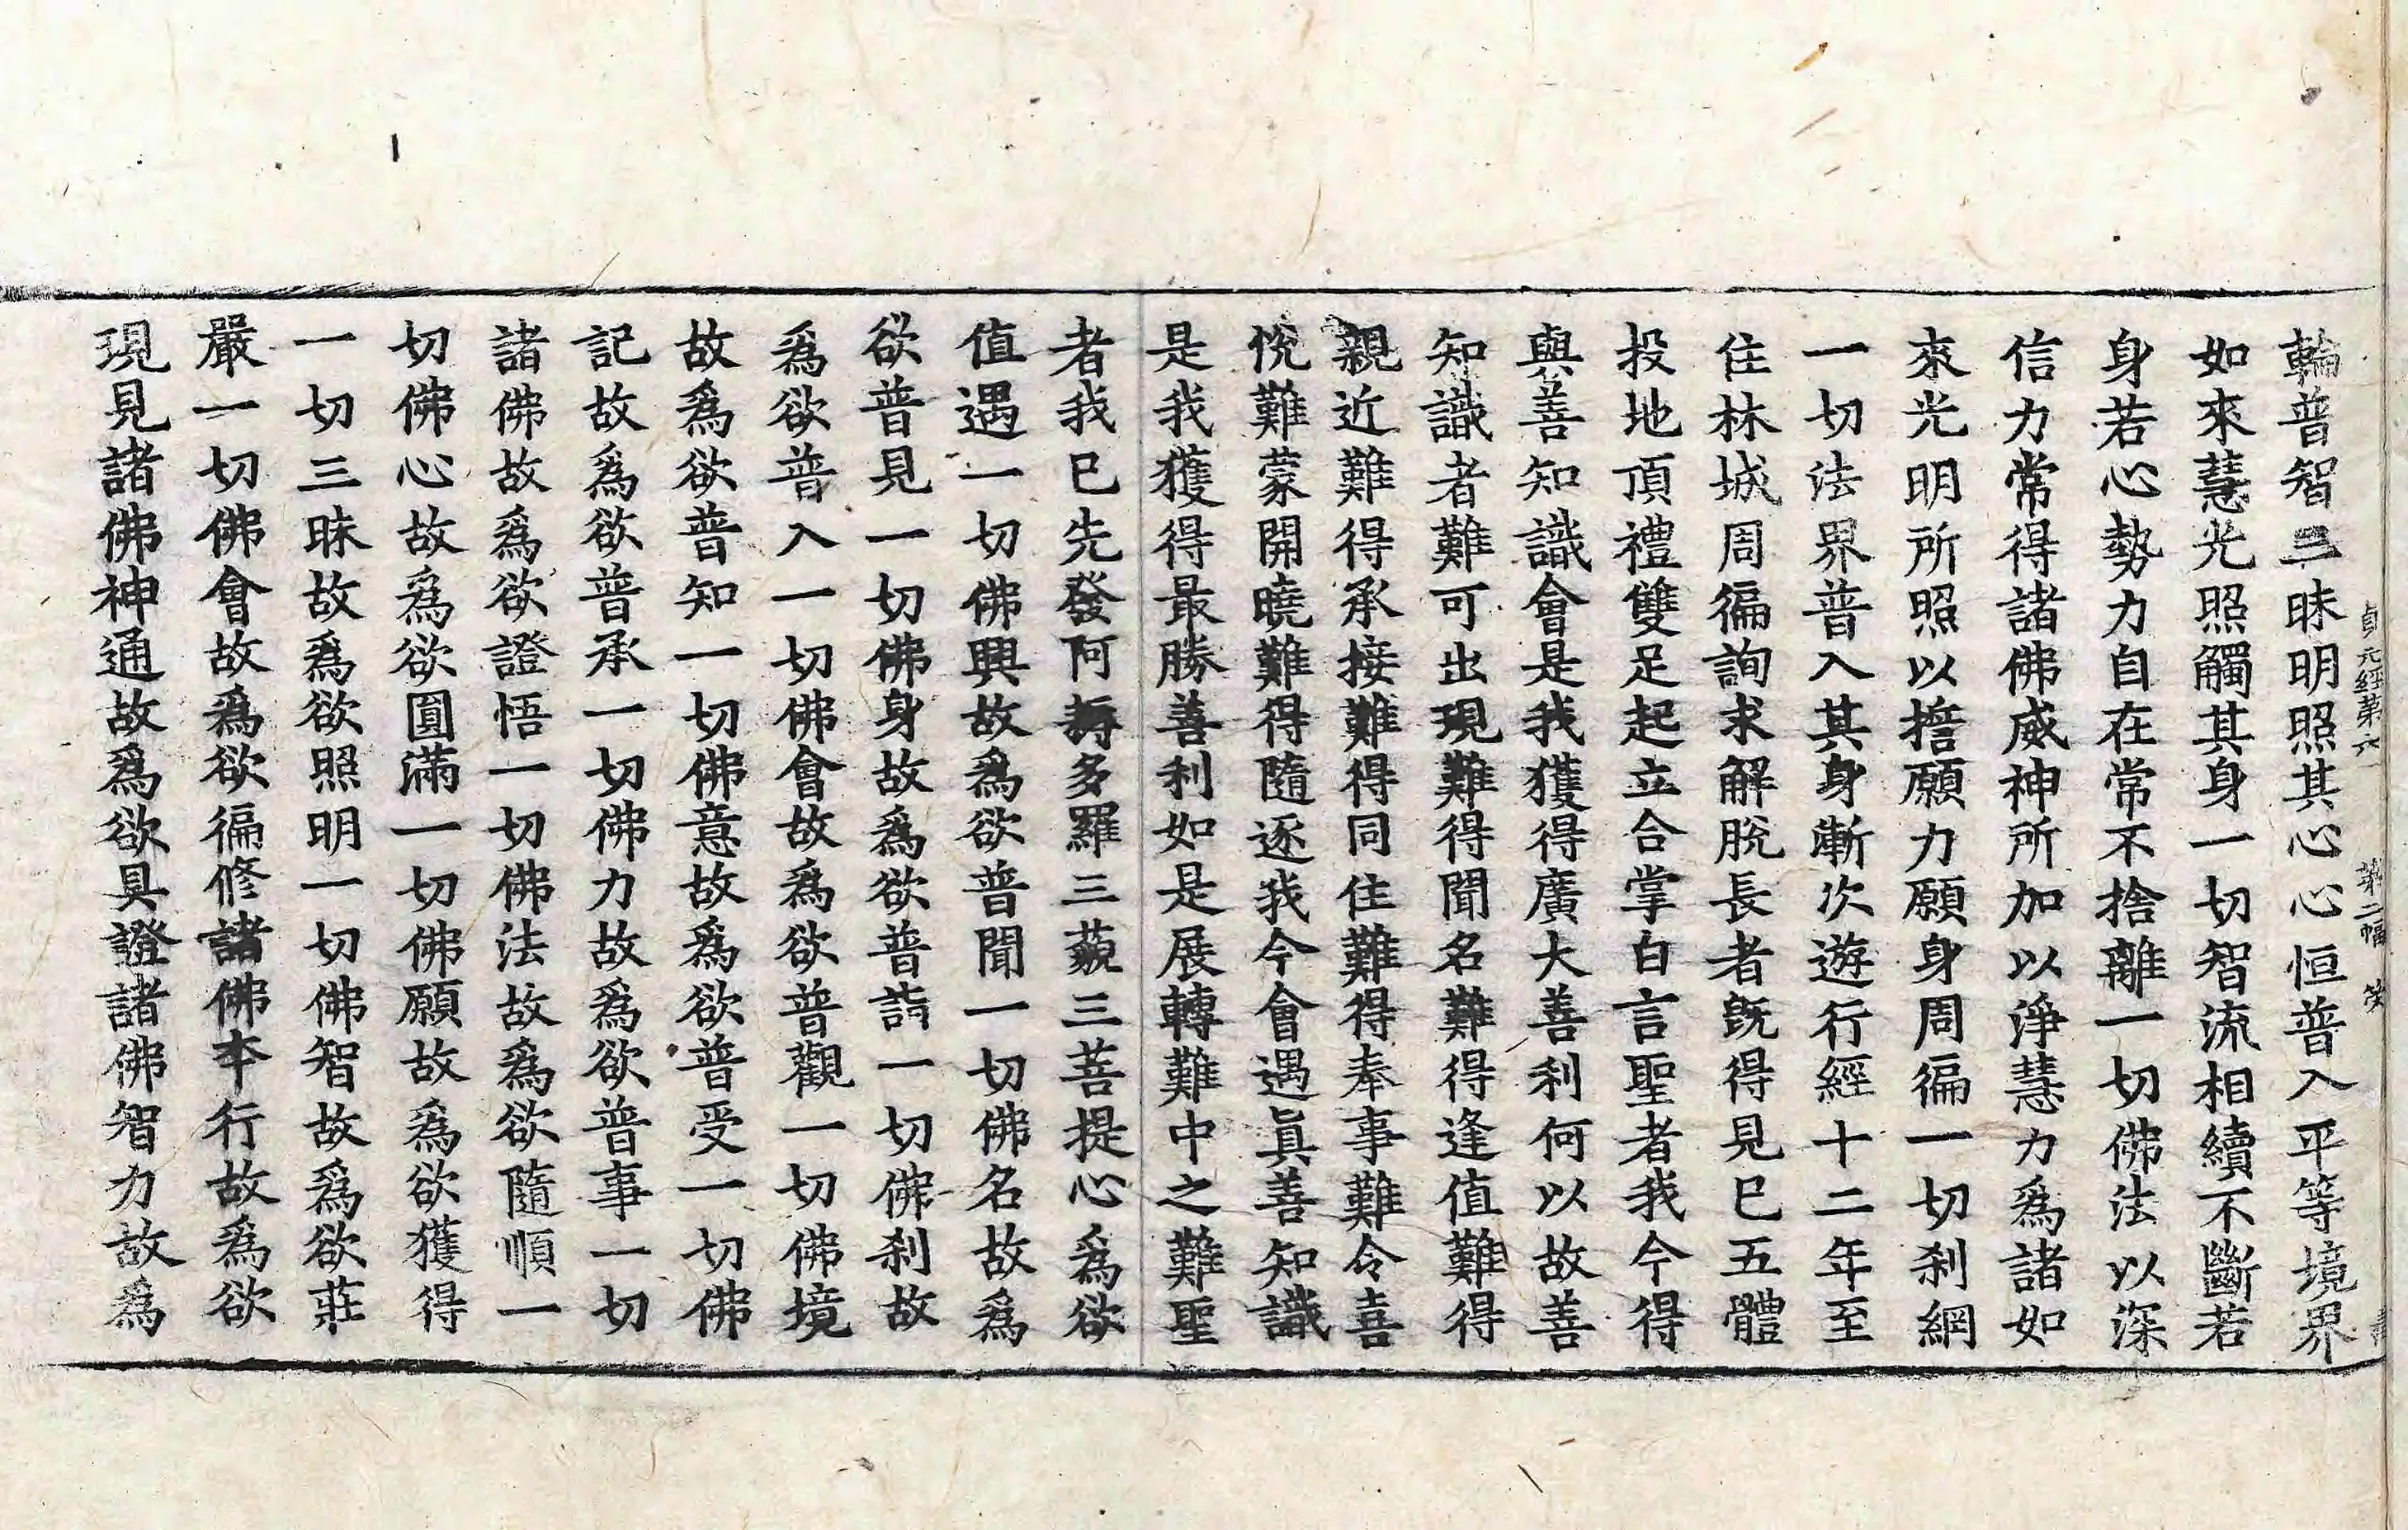 貞元經第六 第二幅
輪普智三昧明照其心心恒普入平等境界
如來慧光照觸其身一切智流相續不斷若
身若心勢力自在常不捨離一切佛法以深
信力常得諸佛威神所加以淨慧力爲諸如
來光明所照以擔願力願身周徧一切刹網
一切法界普入其身漸次遊行經十二年至
住林城周徧詢求解脫長者旣得見已五體
投地頂禮雙足起立合掌白言聖者我今得
與善知識會是我獲得廣大善利何以故善
知識者難可出現難得聞名難得逢值難得
親近難得承接難得同住難得奉事難令喜
悅難蒙開曉難得隨逐我今會遇眞善知識
是我獲得最勝善利如是展轉難中之難聖
者我已先發阿耨多羅三藐三菩提心爲欲
值遇一切佛興故爲欲普聞一切佛名故爲
欲普見一切佛身故爲欲普詣一切佛刹故
爲欲普入一切佛會故爲欲普觀一切佛境
故爲欲普知一切佛意故爲欲普受一切佛
記故爲欲普承一切佛力故爲欲普事一切
諸佛故爲欲證悟一切佛法故爲欲隨順一
切佛心故爲欲圓滿一切佛願故爲欲獲得
一切三昧故爲欲照明一切佛智故爲欲莊
嚴一切佛會故爲欲徧修諸佛本行故爲欲
現見諸佛神通故爲欲具證諸佛智力故爲